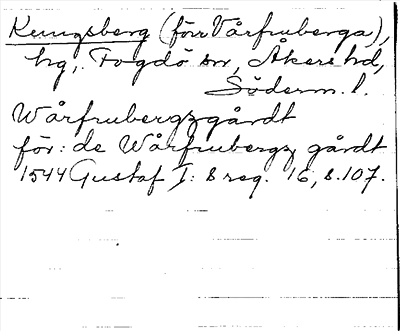 Kungsberg (förr Vårfruberga),
hg, Fogdö sn, Åkers hd,
Söderm. l.
Wårfrubergzgårdt
för: de Wårfrubergz gårdt
1544 Gustaf I: s reg. 16, s. 107.